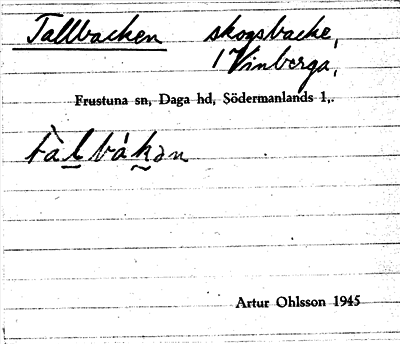 Tallbacken skogsbacke,
i Vinberga,
Frustuna sn, Daga hd, Södermanlands l,.
tàl bákən
Artur Ohlsson 1945